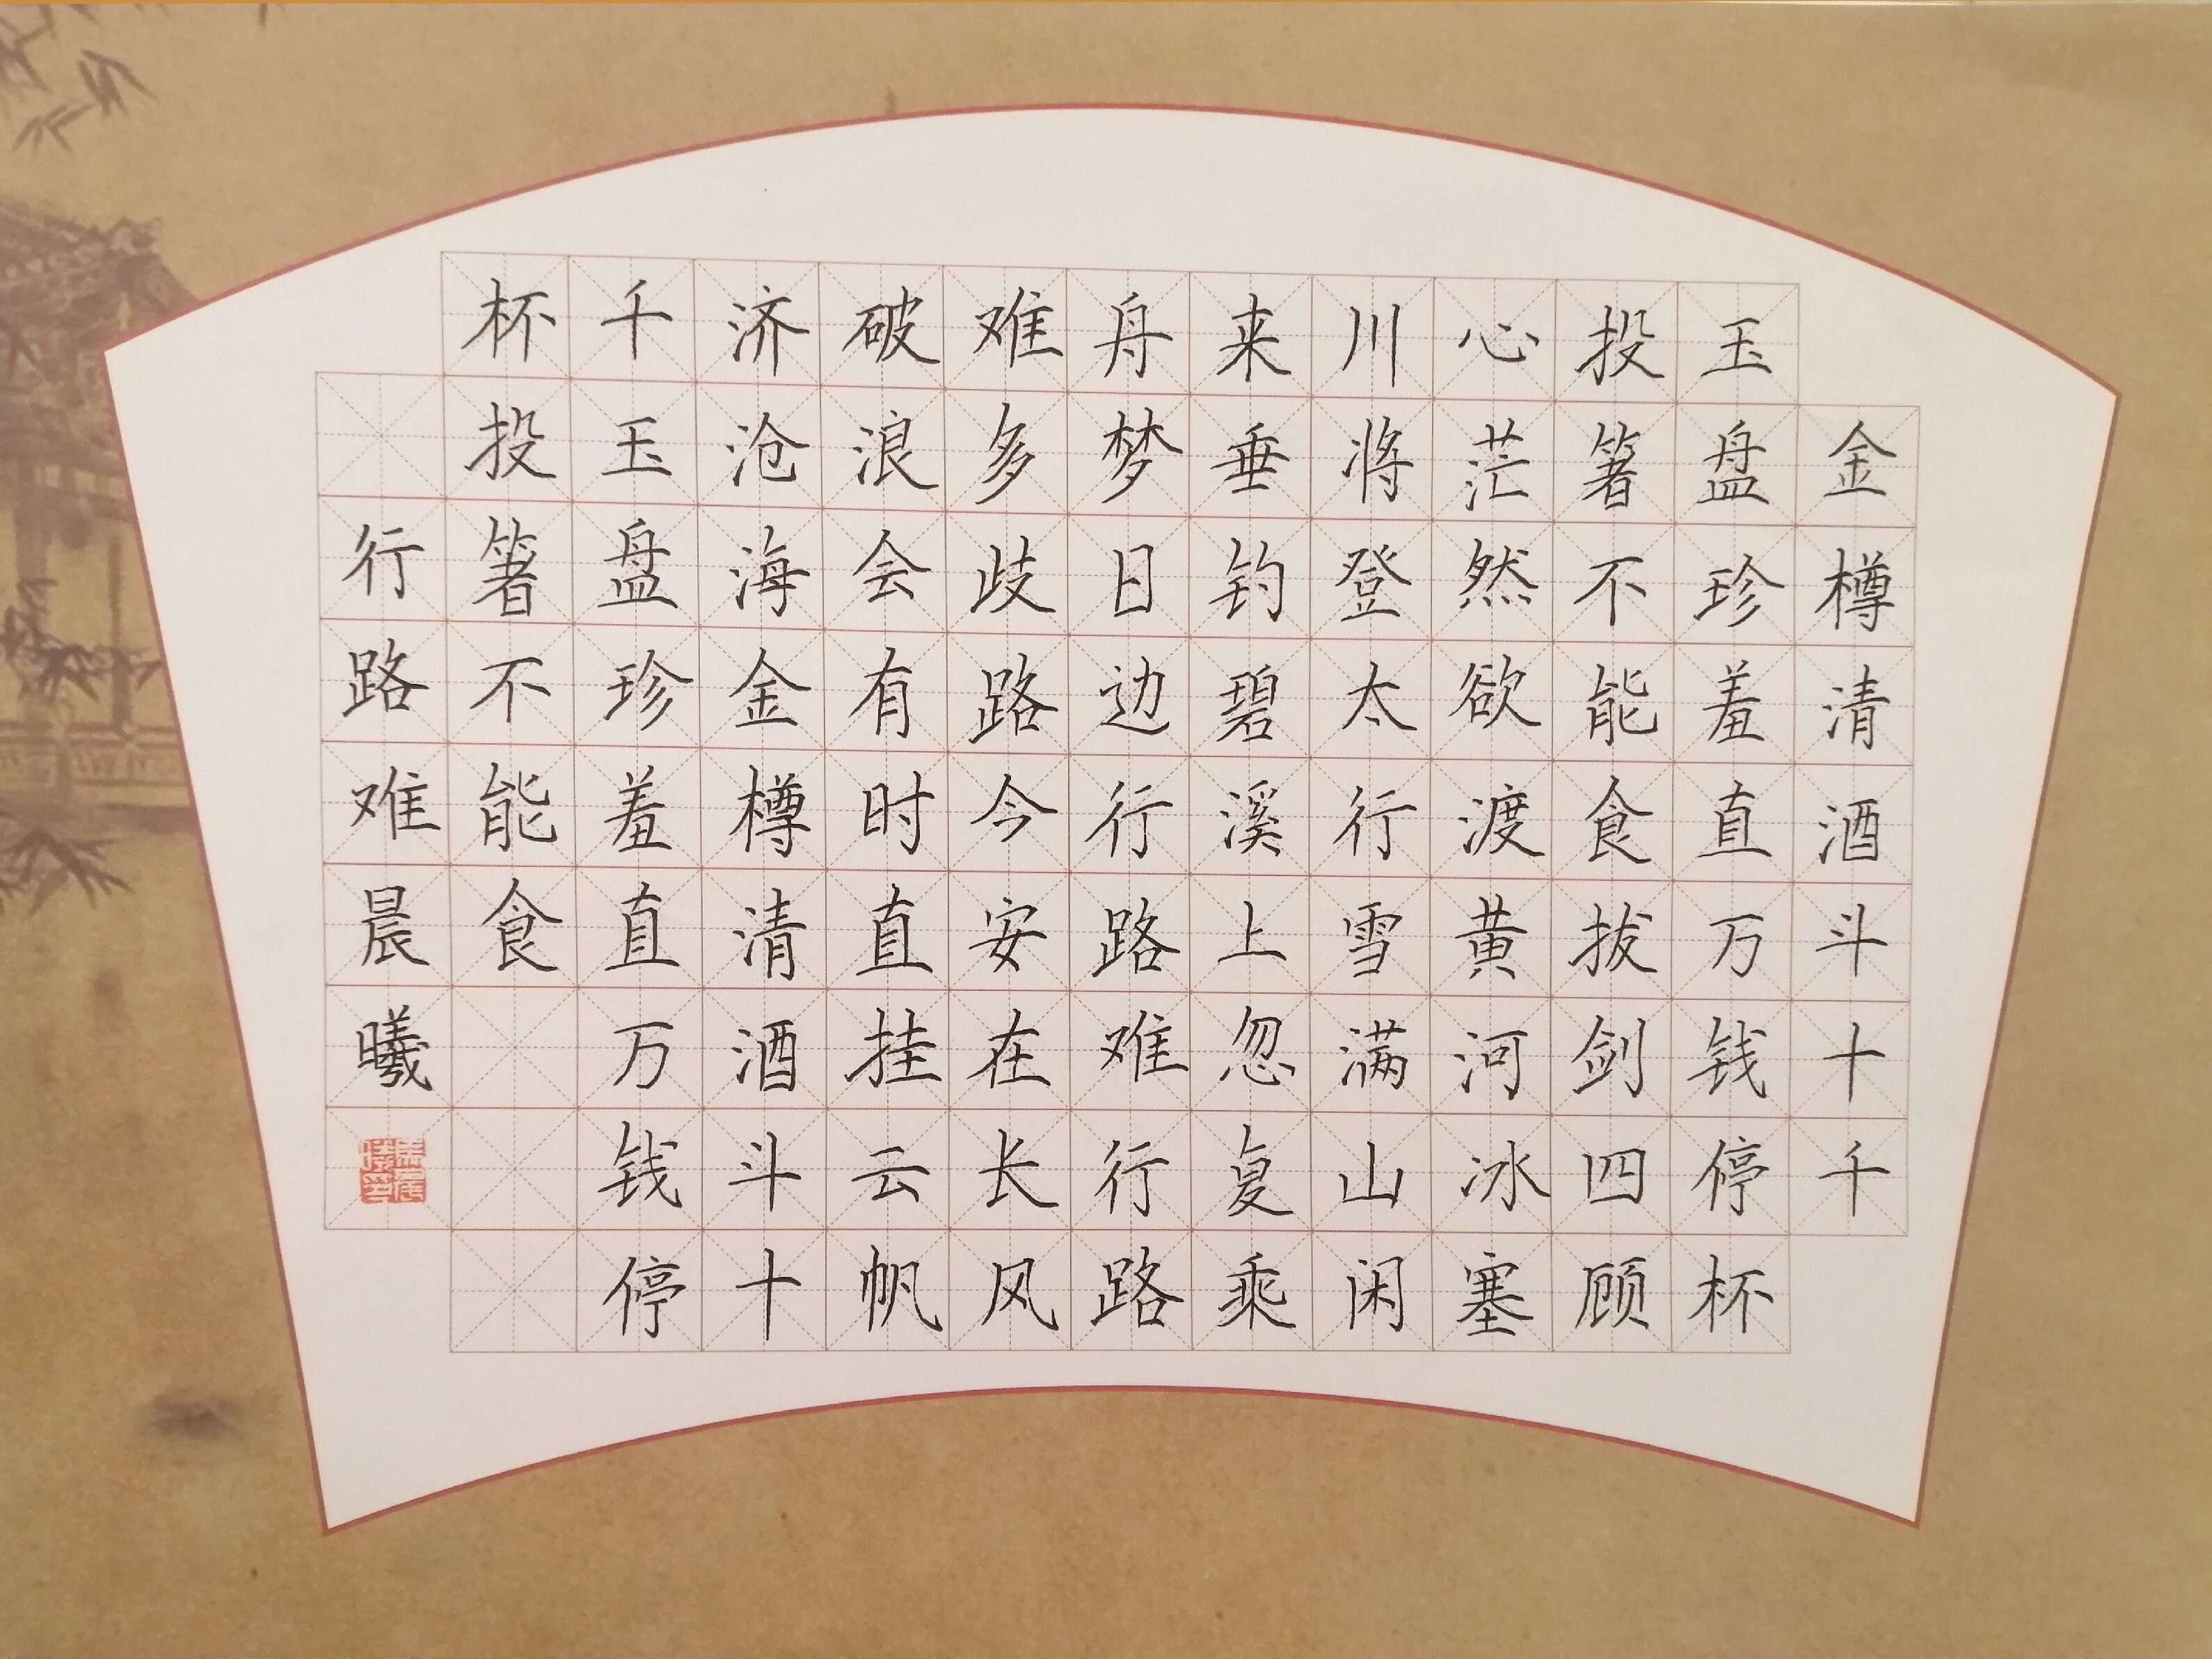 金樽清酒斗十千
玉盘珍羞直万钱停杯
投箸不能食拔剑四顾
心茫然欲渡黄河冰塞
川将登太行雪满山闲
来垂钓碧溪上忽复乘
舟梦日边行路难行路
难多歧路今安在长风
破浪会有时直挂云帆
济沧海金樽清酒斗十
千玉盘珍羞直万钱停
杯投箸不能食
行路难晨曦